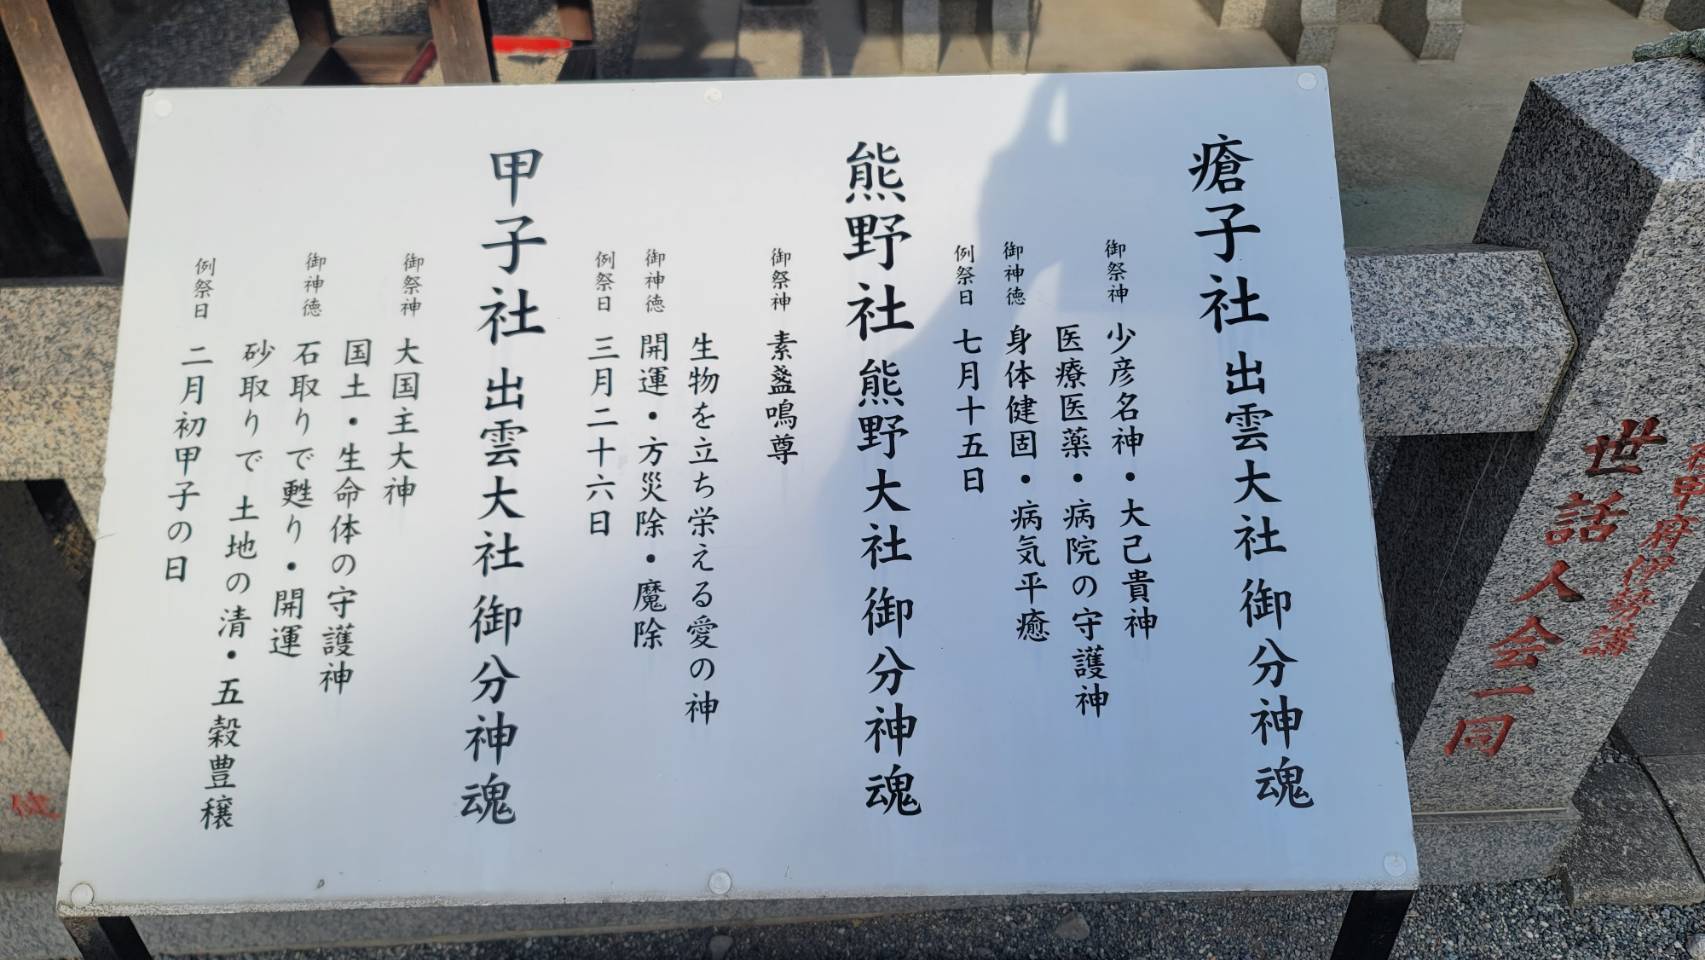 瘡子社 出雲大社 御分神魂
御祭神 少彦名神・大己貴神
医療医薬・病院の守護神
御神徳 身体健固・病気平癒
例祭日 七月十五日
熊野社 熊野大社 御分神魂
御祭神 素盞鳴尊
生物を立ち栄える愛の神
御神徳 開運・方災除・魔除
例祭日 三月二十六日
甲子社 出雲大社 御分神魂
御祭神 大国主大神
国土・生命体の守護神
御神徳 石取りで甦り・開運
砂取りで 土地の清・五穀豊穣
例祭日 二月初甲子の日
甲府伊勢講
世話人会一同